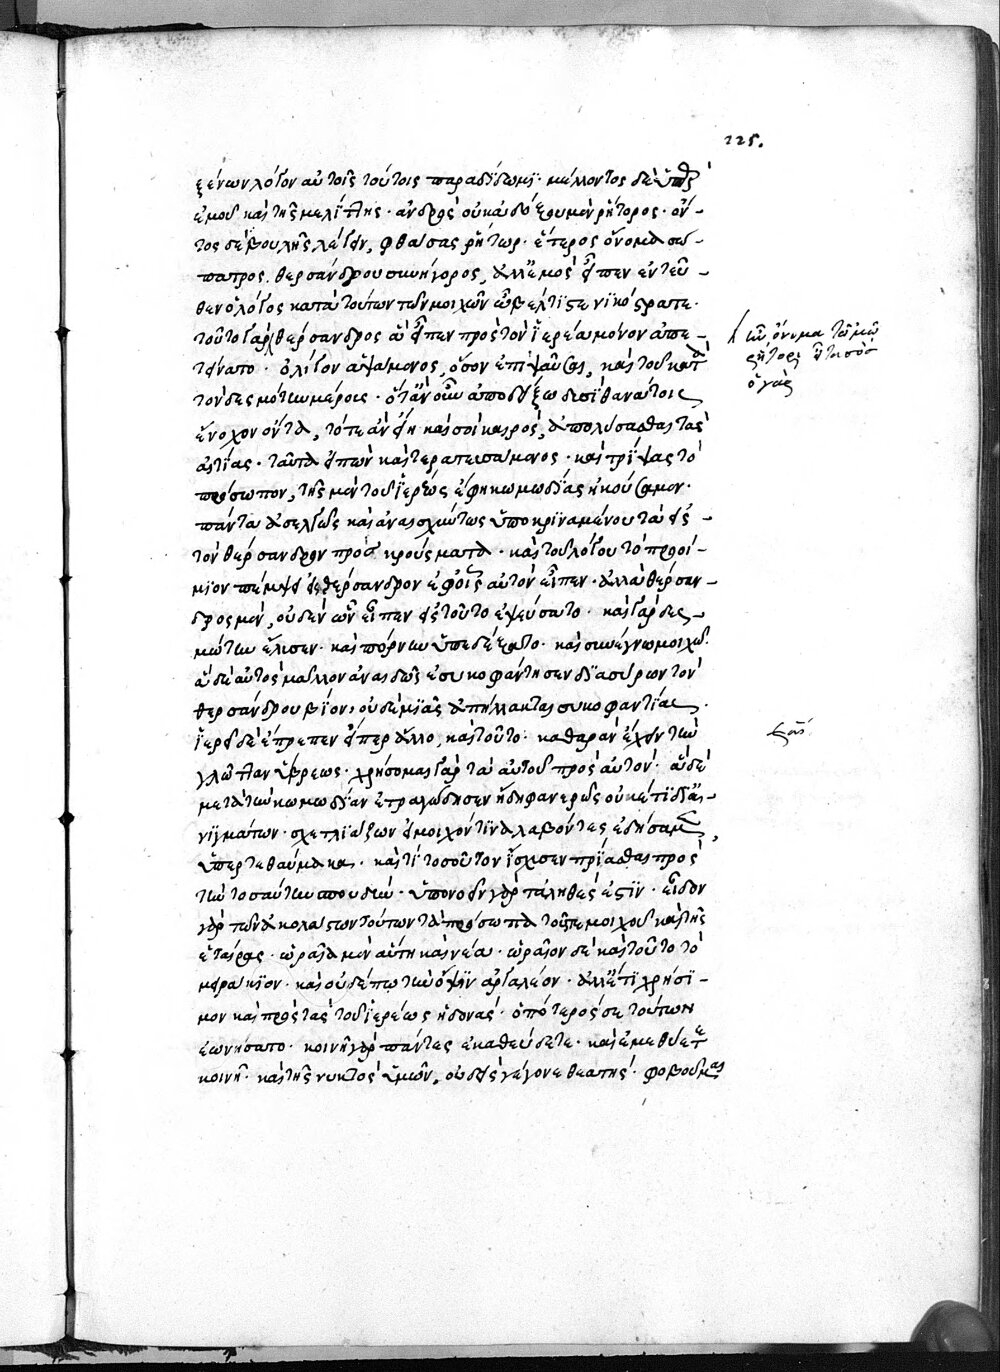 225.
ξένων λόγον αὐτοῖς τούτοις παραδίδωμι· μέλλοντος δὲ ὑπὲρ
ἐμοῦ καὶ τῆς μελίττης· ἀνδρὸς οὐκ ἀδόξου μὲν ῥήτορος· ὄν-
τος δὲ βουλῆς λέγειν, φθάσας ῥήτωρ· ἕτερος ὄνομα σώ-
πατρος. θερσάνδρου συνήγορος, ἀλλ' ἐμὸς εἶπεν ἐντεῦ-
θεν ὁ λόγος κατὰ τούτων τῶν μοιχῶν ὦ βέλτιστε νικόστρατε·
τοῦτο γὰρ θέρσανδρος ἃ εἶπεν πρὸς τὸν ἱερέα μόνον ἀπε-
τείνατο· ὀλίγον ἁψάμενος, ὅσον ἐπιψαῦσαι, καὶ τοῦ κατὰ
τὸν δεσμώτην μέρους· ὅταν οὖν ἀποδείξω δυσὶ θανάτοις
ἔνοχον ὄντα, τότε ἂν εἴη καὶ σοὶ καιρὸς, ἀπολύσασθαι τὰς
αἰτίας· ταῦτα εἰπὼν καὶ τερατευσάμενος· καὶ τρίψας τὸ
πρόσωπον, τῆς μὲν τοῦ ἱερέως ἔφη κωμωδίας ἠκούσαμεν·
πάντα ἀσελγῶς καὶ ἀναισχύντως ὑποκριναμένου τὰ εἰς
τὸν θέρσανδρον προσκρούσματα· καὶ τοῦ λόγου τὸ προοί-
μιον μέμψεις εἰς θέρσανδρον ἐφ' οἷς αὐτὸν εἶπεν· ἀλλὰ θέρσαν-
δρος μὲν, οὐδὲν ὧν εἶπεν εἰς τοῦτο ἐψεύσατο· καὶ γὰρ δεσ-
μώτην ἔλυσεν· καὶ πόρνην ὑπεδέξατο· καὶ συνέγνω μοιχῶ·
ἃ δὲ αὐτὸς μᾶλλον ἀναιδῶς ἐσυκοφάντησεν διασύρων τὸν
θερσάνδρου βίον, οὐδεμιᾶς ἀπήλλακται συκοφαντίας.
ἱερεῖ δὲ ἔπρεπεν εἴπερ ἄλλο, καὶ τοῦτο· καθαρὰν ἔχειν τὴν
γλῶτταν ὕβρεως· χρήσομαι γὰρ τὰ αὐτοῦ πρὸς αὐτόν· ἃ δὲ
μετὰ τὴν κωμωδίαν ἐτραγώδησεν ἤδη φανερῶς οὐκέτι δι' αἰ-
νιγμάτων· σχετλιάζων εἰ μοιχόν τινα λαβόντες ἐδήσαμεν,
ὑπερτεθαύμακα. καὶ τί τοσοῦτον ἴσχυσεν πρίασθαι πρὸς
τὴν τοσαύτην σπουδήν· ὑπονοεῖν γὰρ τἀληθές ἐστιν· εἶδεν
γὰρ τῶν ἀκολάστων τούτων τὰ πρόσωπα τοῦ τε μοιχοῦ καὶ τῆς
ἑταίρας· ὡραία μὲν αὕτη καὶ νέα· ὡραῖον δὲ καὶ τοῦτο τὸ
μειράκιον· καὶ οὐδέπω τὴν ὄψιν ἀργαλέον· ἀλλ' ἔτι χρήσι-
μον καὶ πρὸς τὰς τοῦ ἱερέως ἡδονάς· ὁπότερός σε τούτων
ἐωνήσατο· κοινῆ γὰρ πάντες ἐκαθεύδετε· καὶ ἐμεθύετε
κοινῆ· καὶ τῆς νυκτὸς ὑμῶν, οὐδεὶς γέγονε θεατής· φοβοῦμαι
ὄνομα
ὁ γὰρ